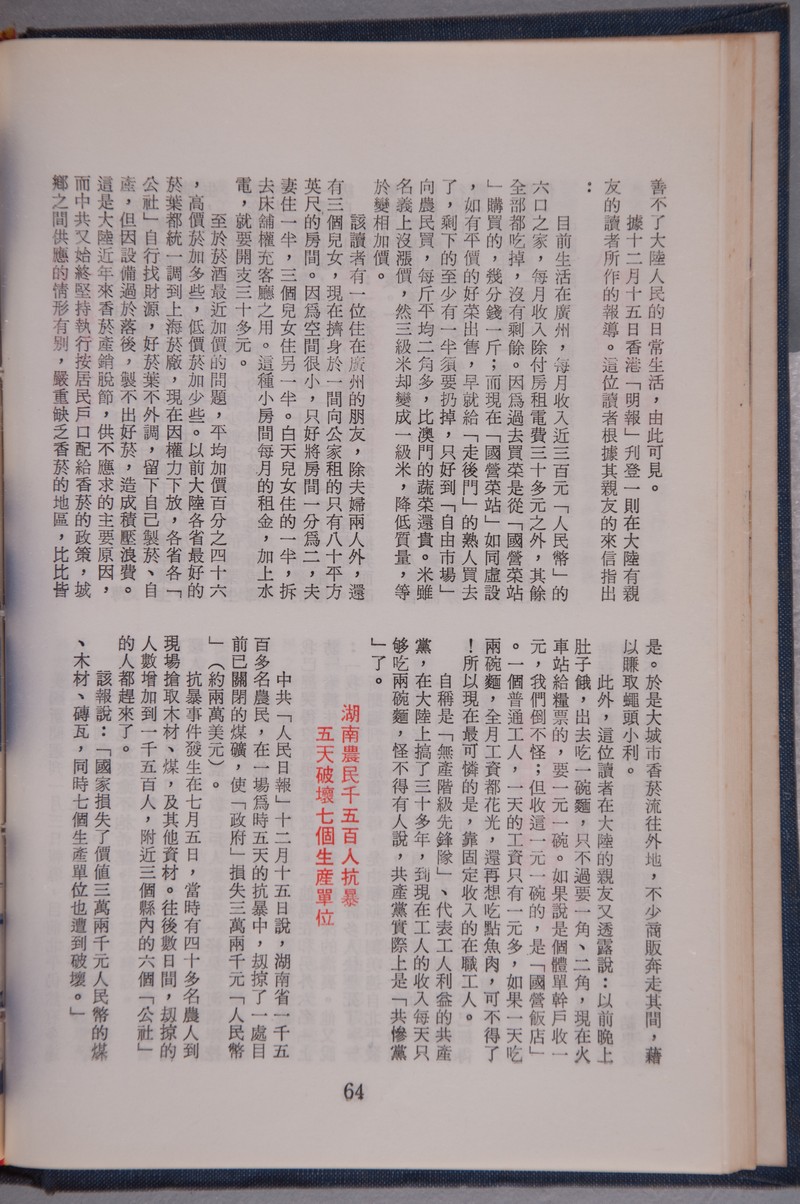 善不了大陸人民的日常生活，由此可見。
據十二月十五日香港「明報」刋登一則在大陸有親
友的讀者所作的報導。這位讀者根據其親友的來信指出
：
目前生活在廣州，每月收入近三百元「人民幣」的
六口之家，每月收入除付房租電費三十多元之外，其餘
全部都吃掉，沒有剩餘。因爲過去買菜是從「國營菜站
」購買的，幾分錢一斤；而現在「國營菜站」如同虛設
，如有平價的好菜出售，早就給「走後門」的熟人買去
了，剩下的至少有一半須要扔掉，只好到「自由市場」
向農民買，每斤平均二角多，比澳門的蔬菜還貴。米雖
名義上沒漲價，然三級米却變成一級米，降低質量，等
於變相加價。
該讀者有一位住在廣州的朋友，除夫婦兩人外，還
有三個兒女，現在擠身於一間向公家租的只有八十平方
英尺的房間。因爲空間很小，只好將房間一分爲二，夫
妻住一半，三個兒女住另一半。白天兒女住的一半，拆
去床舖權充客廳之用。這種小房間每月的租金，加上水
電，就要開支三十多元。
至於菸酒最近加價的問題，平均加價百分之四十六
，高價菸加多些，低價菸加少些。以前大陸各省最好的
菸葉都統一調到上海菸廠，現在因權力下放，各省各「
公社」自行找財源，好菸葉不外調，留下自己製菸、自
產，但因設備過於落後，製不出好菸，造成積壓浪費。
這是大陸近年來香菸產銷脫節，供不應求的主要原因，
而中共又始終堅持執行按居民戶口配給香菸的政策，城
鄉之間供應的情形有別，嚴重缺乏香菸的地區，比比皆
是。於是大城市香菸流往外地，不少商販奔走其間，藉
以賺取蠅頭小利。
此外，這位讀者在大陸的親友又透露說：以前晚上
肚子餓，出去吃一碗麵，只不過要一角、二角，現在火
車站給糧票的，要一元一碗。如果說是個體單幹戶收一
元，我們倒不怪；但收這一元一碗的，是「國營飯店」
。一個普通工人，一天的工資只有一元多，如果一天吃
兩碗麵，全月工資都花光，還再想吃點魚肉，可不得了
！所以現在最可憐的是，靠固定收入的在職工人。
自稱是「無產階級先鋒隊」、代表工人利益的共產
黨，在大陸上搞了三十多年，到現在工人的收入每天只
够吃兩碗麵，怪不得有人說，共產黨實際上是「共慘黨
」了。
湖南農民千五百人抗暴
五天破壞七個生產單位
中共「人民日報」十二月十五日說，湖南省一千五
百多名農民，在一場爲時五天的抗暴中，刼掠了一處目
前已關閉的煤礦，使「政府」損失三萬兩千元「人民幣
」（約兩萬美元）。
抗暴事件發生在七月五日，當時有四十多名農人到
現場搶取木材、煤，及其他資材。往後數日間，刼掠的
人數增加到一千五百人，附近三個縣內的六個「公社」
的人都趕來了。
該報說：「國家損失了價值三萬兩千元人民幣的煤
、木材、磚瓦，同時七個生產單位也遭到破壞。」
64